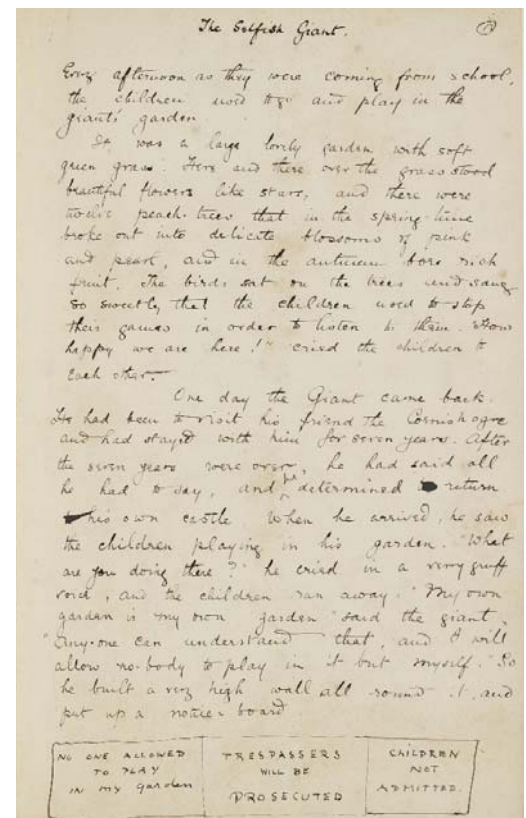 The Selfish Giant. 1
Every afternoon as they were coming from school,
the children used to go and play in the
giant's garden
It was a large lovely garden with soft
green grass. Here and there over the grass stood
beautiful flowers like stars, and there were
twelve peach-trees that in the spring-time
broke out into delicate blossoms of pink
and pearl, and in the autumn bore rich
fruit. The birds sat on the trees and sang
so sweetly that the children used to stop
their games in order to listen to them. "How
happy we are here!" cried the children to
each other.
One day the Giant came back.
He had been to visit his friend the Cornish ogre
and had stayed with him for seven years. After
the seven years were over, he had said all
he had to say, and he determined to return
to his own castle When he arrived, he saw
the children playing in his garden. "What
are you doing there?" he cried in a very gruff
voice, and the children ran away. "My own
garden is my own garden" said the giant,
"Any-one can understand that, and I will
allow no-body to play in it but myself." So
he built a very high wall all round it and
put up a notice-board
NO ONE ALLOWED
TO PLAY
IN MY garden
TRESPASSERS
WILL BE
PROSECUTED
CHILDREN
NOT
ADMITTED.